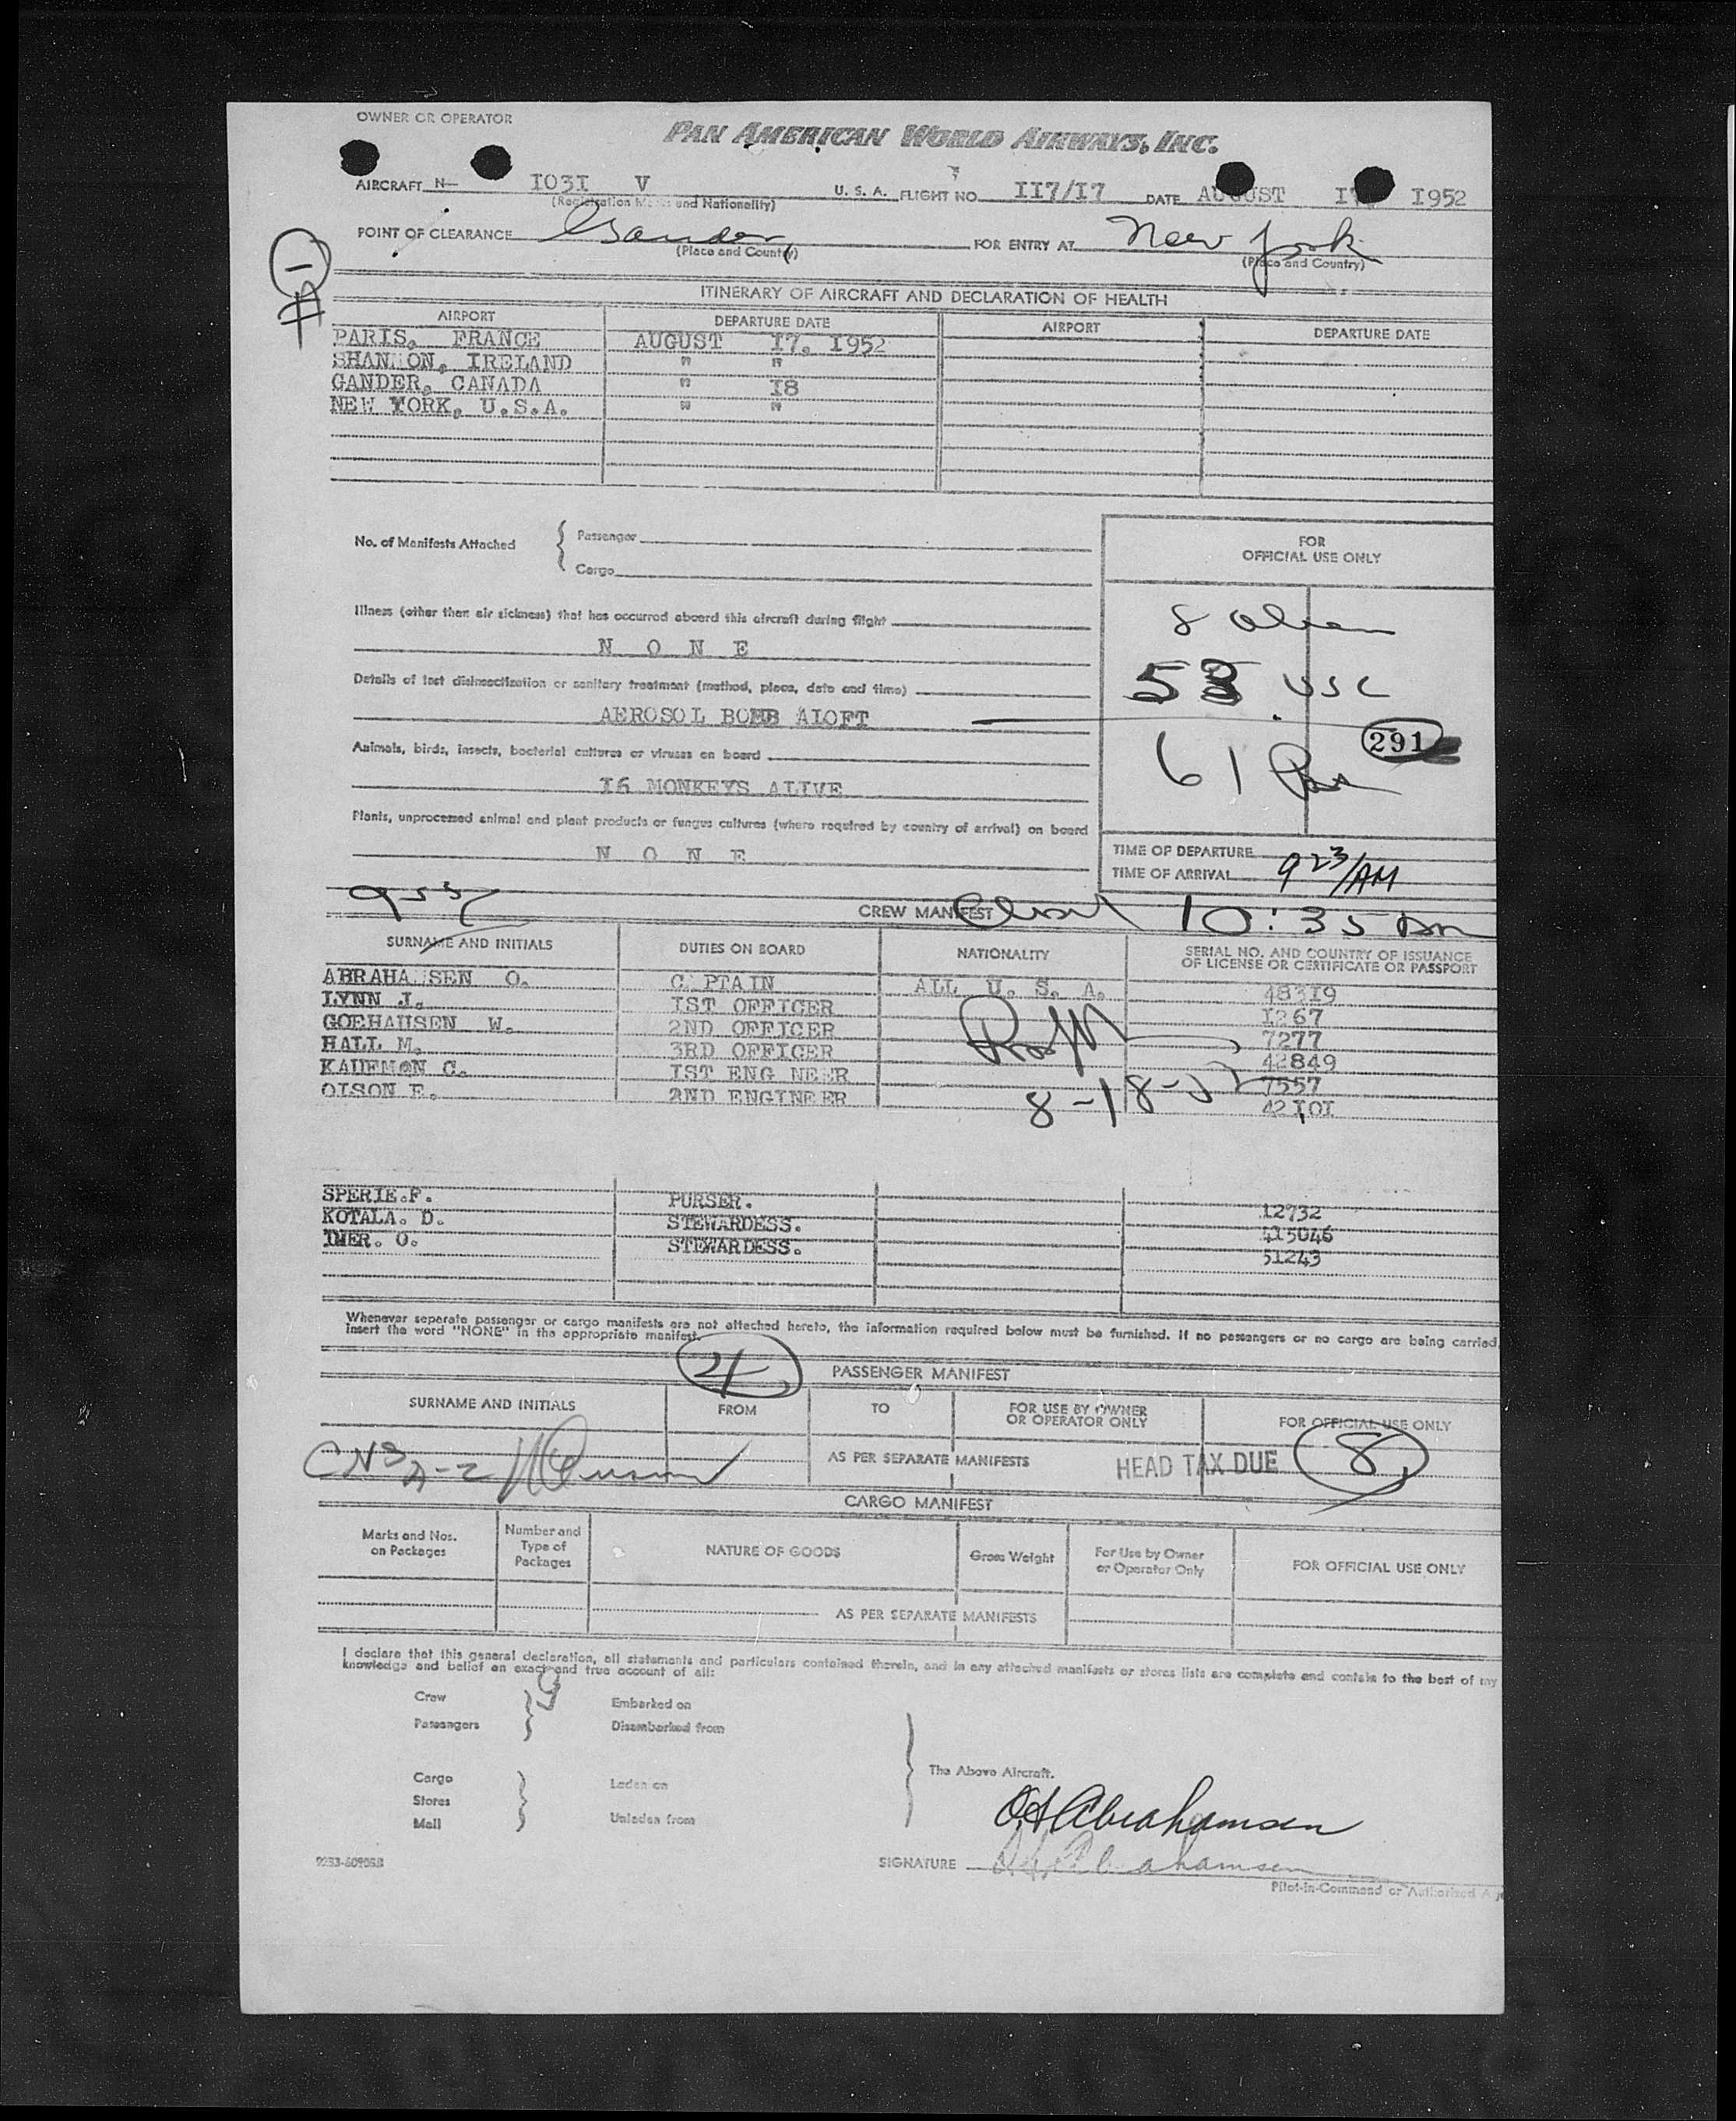 OWNER OR OPERATOR
PAN AMERICAN WORLD AIRWAYS, INC.
AIRCRAFT N— I03I V U. S. A. FLIGHT NO. II7/I7 DATE AUGUST I7, I952
(Registration Marks and Nationality)
POINT OF CLEARANCE Gander FOR ENTRY AT New York
(Place and Country) (Place and Country)
ITINERARY OF AIRCRAFT AND DECLARATION OF HEALTH
AIRPORT DEPARTURE DATE AIRPORT DEPARTURE DATE
PARIS, FRANCE AUGUST I7, I952
SHANNON, IRELAND " "
GANDER, CANADA " I8
NEW YORK, U.S.A. " "
No. of Manifests Attached { Passenger
Cargo
FOR
OFFICIAL USE ONLY
Illness (other than air sickness) that has occurred aboard this aircraft during flight
N O N E
8 Alien
Details of last disinsectization or sanitary treatment (method, place, date and time)
53 USC
AEROSOL BOMB ALOFT
Animals, birds, insects, bacterial cultures or viruses on board
291
61 Pass
I6 MONKEYS ALIVE
Plants, unprocessed animal and plant products or fungus cultures (where required by country of arrival) on board
N O N E
TIME OF DEPARTURE
TIME OF ARRIVAL 9 23/AM
CREW MANIFEST 10:35 am
SURNAME AND INITIALS DUTIES ON BOARD NATIONALITY SERIAL NO. AND COUNTRY OF ISSUANCE
OF LICENSE OR CERTIFICATE OR PASSPORT
ABRAHA SEN O. C PTAIN ALL U. S. A. 483I9
LYNN J. IST OFFICER I267
GOEHAUSEN W. 2ND OFFICER 7277
HALL M. 3RD OFFICER 42849
KAUFMON C. IST ENG NEER 7557
OLSON E. 2ND ENGINEER 42I0I
8-18-52
SPERIE.F. PURSER. 12732
KOTALA. D. STEWARDESS. 415046
STEWARDESS. 51243
Whenever separate passenger or cargo manifests are not attached hereto, the information required below must be furnished. If no passengers or no cargo are being carried,
insert the word "NONE" in the appropriate manifest.
PASSENGER MANIFEST
SURNAME AND INITIALS FROM TO FOR USE BY OWNER
OR OPERATOR ONLY FOR OFFICIAL USE ONLY
AS PER SEPARATE MANIFESTS HEAD TAX DUE 8
CARGO MANIFEST
Marks and Nos.
on Packages Number and
Type of
Packages NATURE OF GOODS Gross Weight For Use by Owner
or Operator Only FOR OFFICIAL USE ONLY
AS PER SEPARATE MANIFESTS
I declare that this general declaration, all statements and particulars contained therein, and in any attached manifests or stores lists are complete and contain to the best of my
knowledge and belief an exact and true account of all:
Crew } Embarked on
Passengers Disembarked from
Cargo } Laden on } The Above Aircraft.
Stores
Mail Unladen from
O A Abrahamsen
SIGNATURE Abrahamsen
Pilot-in-Command or Authorized